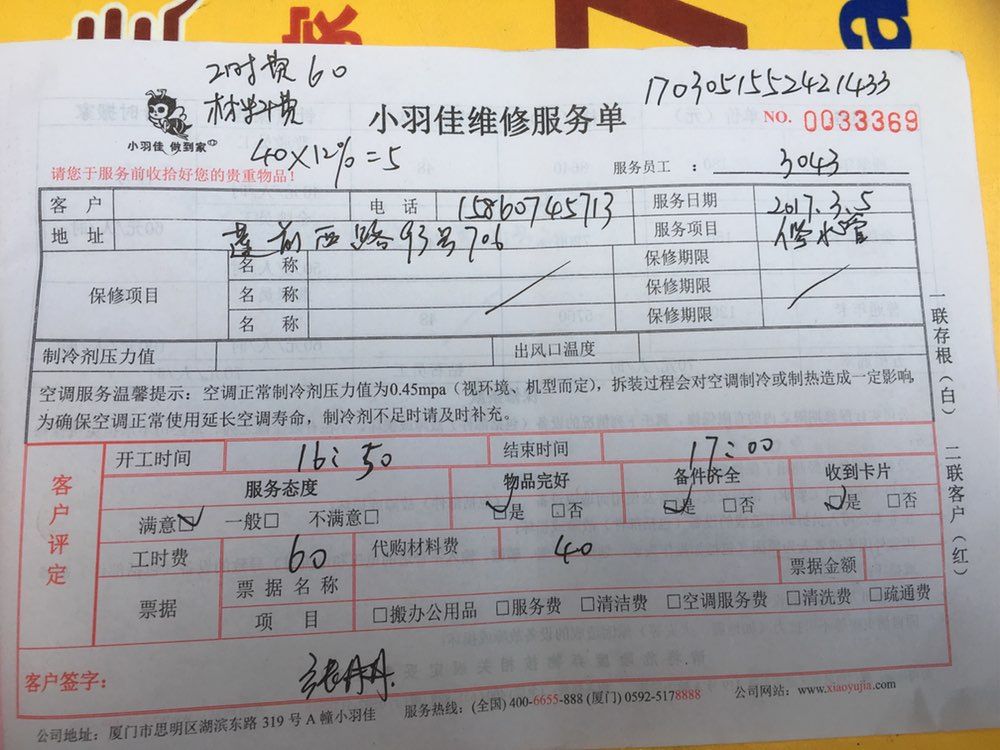 工时费60
材料费
40×12%=5
1703051552421433
小羽佳 做到家
小羽佳维修服务单
NO. 0033369
请您于服务前收拾好您的贵重物品!
服务员工 : 3043
客 户 电 话 15860745713 服务日期 2017.3.5
地 址 莲前西路93号706 服务项目 修水管
保修项目
名 称 保修期限
名 称 保修期限
名 称 保修期限
制冷剂压力值 出风口温度
空调服务温馨提示：空调正常制冷剂压力值为0.45mpa（视环境、机型而定），拆装过程会对空调制冷或制热造成一定影响，
为确保空调正常使用延长空调寿命，制冷剂不足时请及时补充。
客户评定
开工时间 16:50 结束时间 17:00
服务态度 物品完好 备件齐全 收到卡片
满意☑ 一般□ 不满意□ ☑是 □否 ☑是 □否 ☑是 □否
工时费 60 代购材料费 40
票据 票据名称 票据金额
项 目 □搬办公用品 □服务费 □清洁费 □空调服务费 □清洗费 □疏通费
客户签字: 张丹丹
公司地址: 厦门市思明区湖滨东路 319 号 A 幢小羽佳 服务热线: (全国) 400-6655-888 (厦门) 0592-5178888 公司网站: www.xiaoyujia.com
一联存根（白）
二联客户（红）